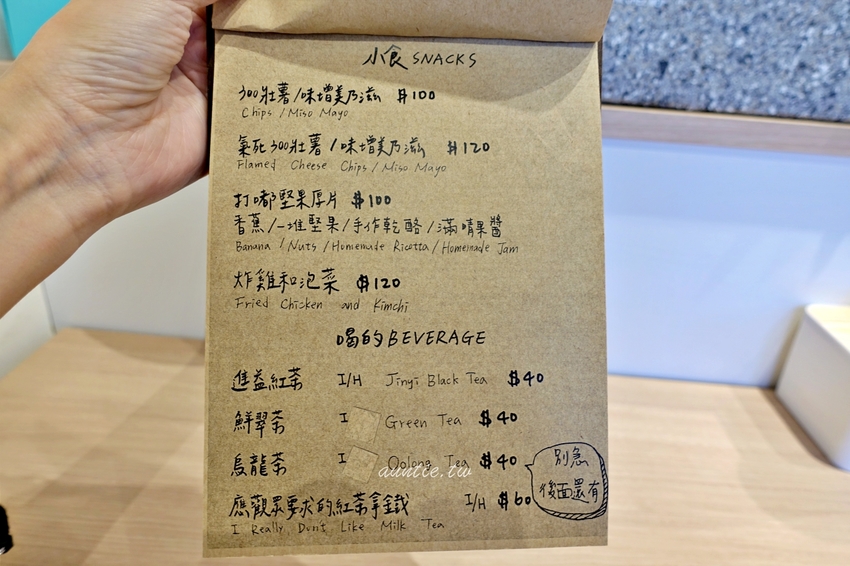 小食 SNACKS
300壯薯/味增美乃滋 $100
Chips / Miso Mayo
氣死300壯薯/味增美乃滋 $120
Flamed Cheese Chips / Miso Mayo
打嘟堅果厚片 $100
香蕉/一堆堅果/手作乾酪/滿晴果醬
Banana / Nuts / Homemade Ricotta / Homemade Jam
炸雞和泡菜 $120
Fried Chicken and Kimchi
喝的 BEVERAGE
進益紅茶 I/H Jinyi Black Tea $40
鮮翠茶 I Green Tea $40
烏龍茶 I Oolong Tea $40
auntie.tw
應觀眾要求的紅茶拿鐵 I/H $60
I Really Don't Like Milk Tea
別急
後面還有